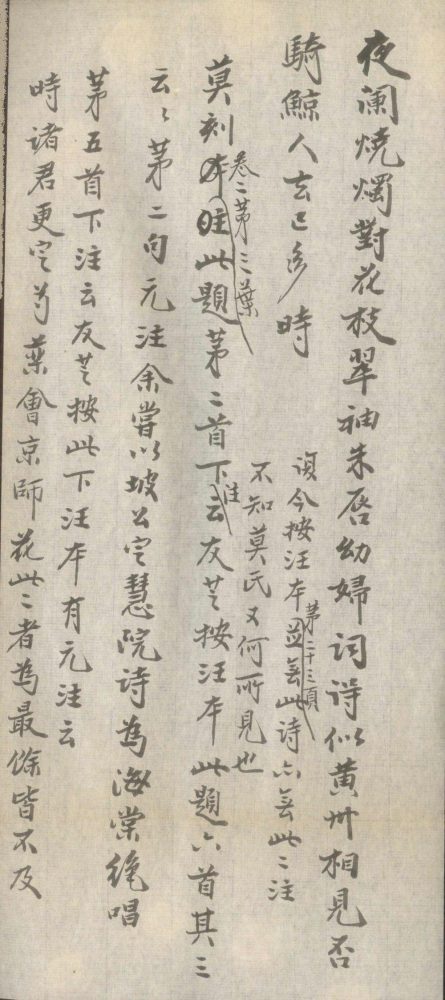 夜阑燒燭對花枝翠袖朱唇幼婦詞詩似黄州相見否
騎鯨人去已多時
誤今按汪本並無此詩亦無此二注
第二十三頁
不知莫氏又何所見也
卷二第三葉
莫刻本注此題第二首下注云友芝按汪本此題六首其三
云云第二句元注余嘗以坡公定慧院詩為海棠絶唱
第五首下注云友芝按此下汪本有元注云
時諸君更定芍藥會京師花此二者為最餘皆不及